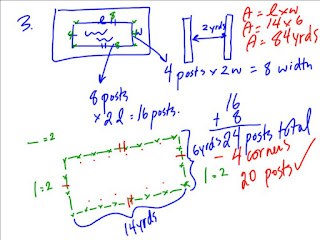 3.
8
l
8
w
8
2 yrds
A = l x w
A = 14 x 6
A = 84 yrds
4 posts x 2w = 8 width
8 posts
x 2l = 16 posts.
16
+ 8
24 posts total
- 4 corners
20 posts ✓
— = 2
l = 2
6 yrds
l = 2
14 yrds